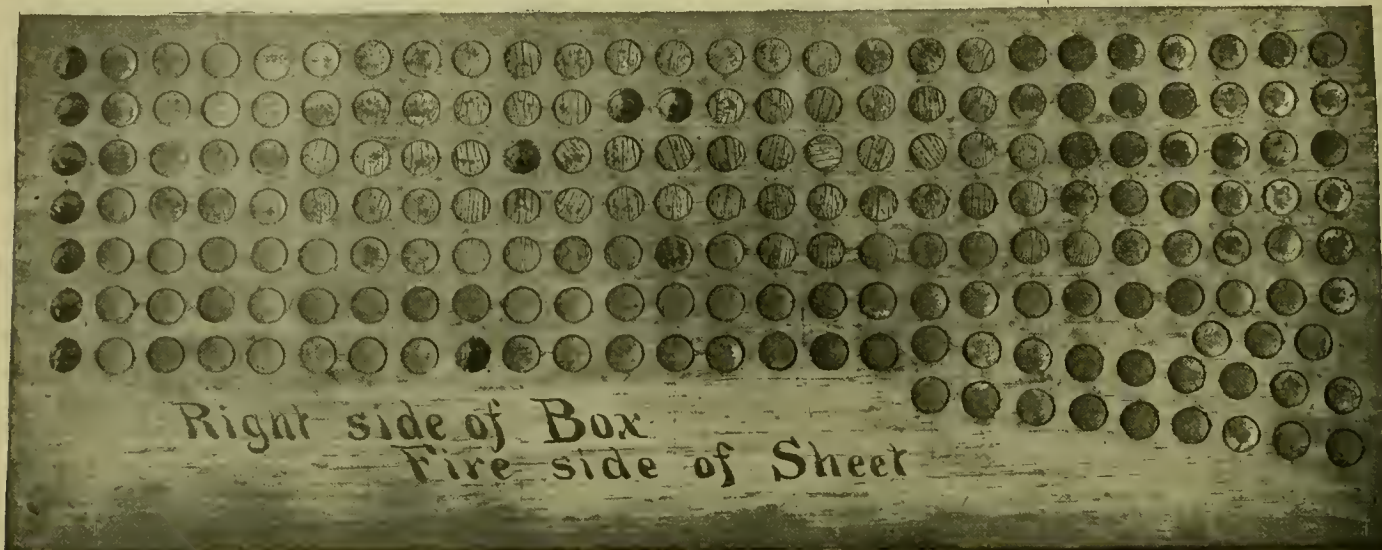 Right side of Box
Fire side of Sheet